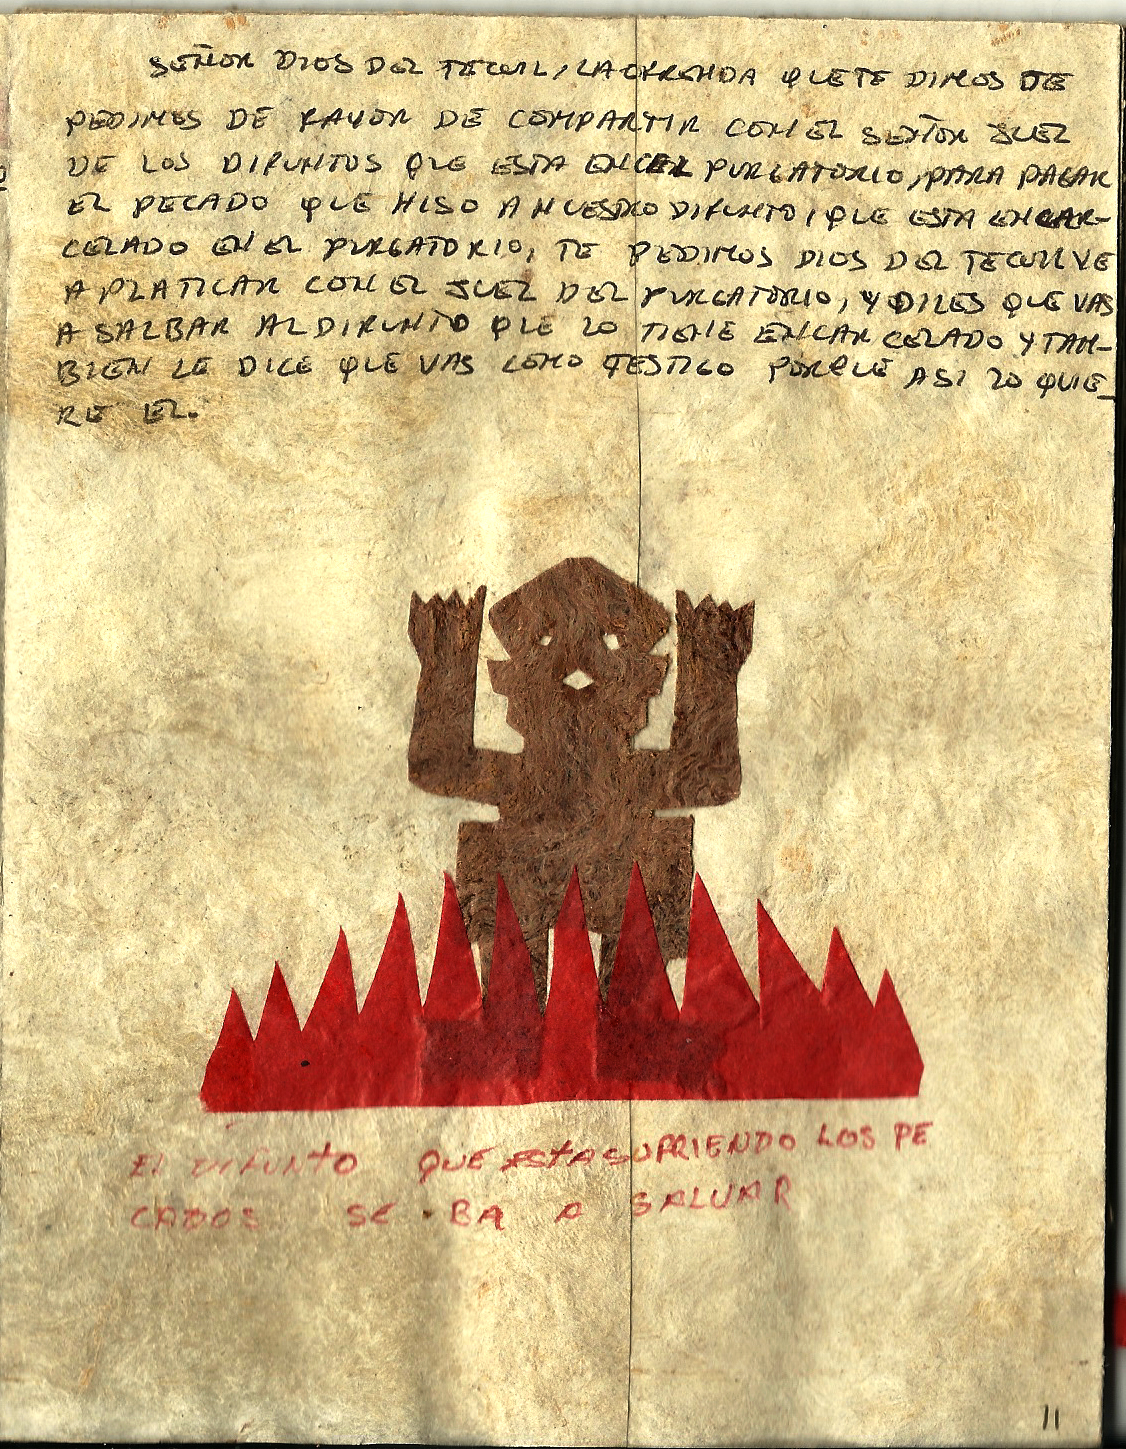 SEÑOR DIOS DEL TECUIL, LA OFRENDA QUE TE DIMOS TE
PEDIMOS DE FAVOR DE COMPARTIR CON EL SEÑOR JUEZ
DE LOS DIFUNTOS QUE ESTA EN EL PURGATORIO, PARA PAGAR
EL PECADO QUE HISO A NUESTRO DIFUNTO, QUE ESTA ENCAR-
CELADO EN EL PURGATORIO, TE PEDIMOS DIOS DEL TECUIL VE
A PLATICAR CON EL JUEZ DEL PURGATORIO, Y DILES QUE VAS
A SALBAR AL DIFUNTO QUE LO TIENE ENCARCELADO Y TAM-
BIEN LE DICE QUE VAS COMO TESTIGO PORQUE ASI LO QUIE-
RE EL.
El DIFUNTO QUE ESTA SUFRIENDO LOS PE
CADOS SE BA A SALVAR
11